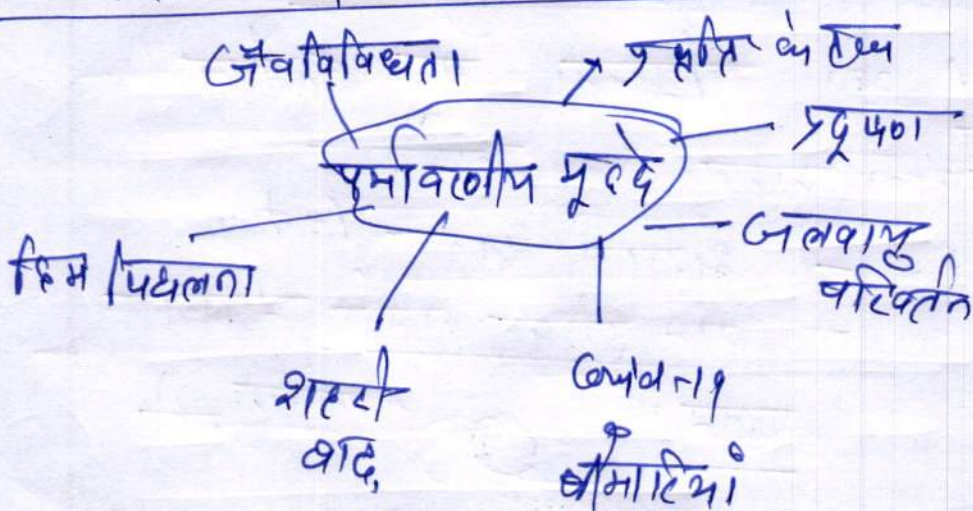 जैवविविधता
के
प्रदूषण
पर्यावरणीय मुद्दे
जलवायु
परिवर्तन
हिम पिघलना
शहरी
बाढ़,
Covid-19
बीमारियां